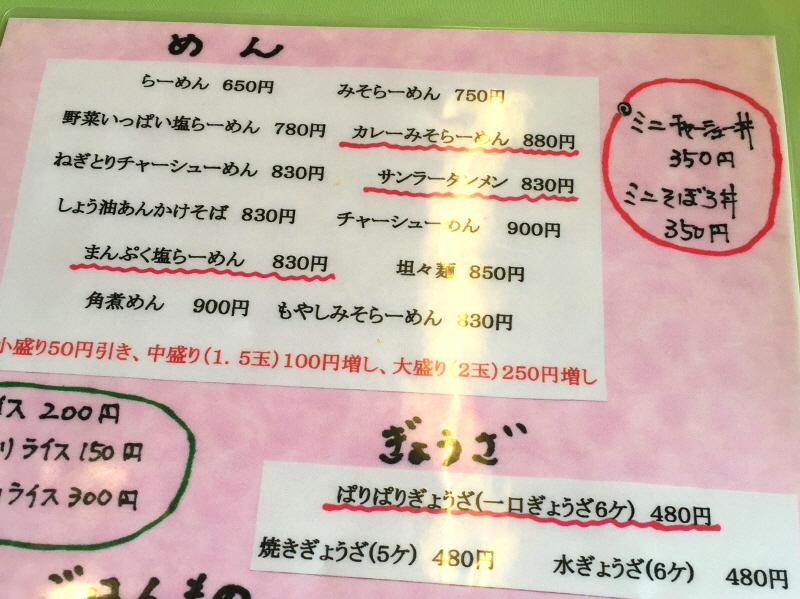 めん
らーめん 650円 みそらーめん 750円
野菜いっぱい塩らーめん 780円 カレーみそらーめん 880円
ねぎとりチャーシューめん 830円 サンラータンメン 830円
しょう油あんかけそば 830円 チャーシューめん 900円
まんぷく塩らーめん 830円 坦々麺 850円
角煮めん 900円 もやしみそらーめん 830円
小盛り50円引き、中盛り(1.5玉)100円増し、大盛り(2玉)250円増し
ミニチャーシュー丼
350円
ミニそぼろ丼
350円
イス 200円
りライス 150円
ライス 300円
ぎょうざ
ぱりぱりぎょうざ(一口ぎょうざ6ケ) 480円
焼きぎょうざ(5ケ) 480円 水ぎょうざ(6ケ) 480円
ごはんもの